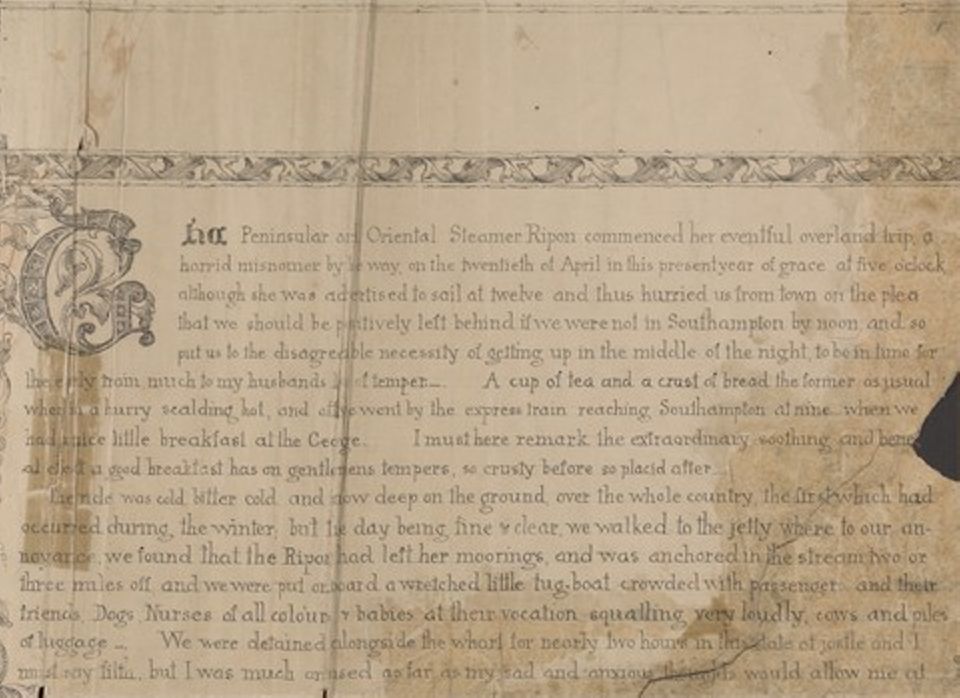 The Peninsular and Oriental Steamer Ripon commenced her eventful overland trip, a
horrid misnomer by the way, on the twentieth of April in this present year of grace at five oclock
although she was advertised to sail at twelve and thus hurried us from town on the plea
that we should be positively left behind if we were not in Southampton by noon and so
put us to the disagreeable necessity of getting up in the middle of the night, to be in time for
the early train much to my husbands of temper... A cup of tea and a crust of bread the former as usual
when in a hurry scalding hot, and off we went by the express train reaching Southampton at nine when we
had a nice little breakfast at the George. I must here remark the extraordinary soothing and
effect a good breakfast has on gentlemens tempers, so crusty before so placid after...
The ride was cold bitter cold and snow deep on the ground, over the whole country, the first which had
occurred during the winter; but the day being fine & clear, we walked to the jetty where to our an-
noyance, we found that the Ripon had left her moorings, and was anchored in the stream two or
three miles off and we were put onboard a wretched little tug-boat crowded with passengers and their
friends Dogs Nurses of all colours & babies at their vocation squalling very loudly, cows and piles
of luggage ... We were detained alongside the wharf for nearly two hours in this state of jostle and I
must say filth, but I was much amused as far as my sad and anxious thoughts would allow me at